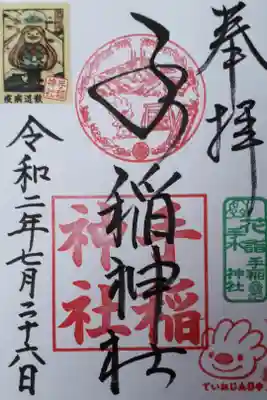 奉拝
手稲神社
手稲
神社
花詣
手稲
神社
ていねじんじゃ
令和二年七月二十六日
疫病退散